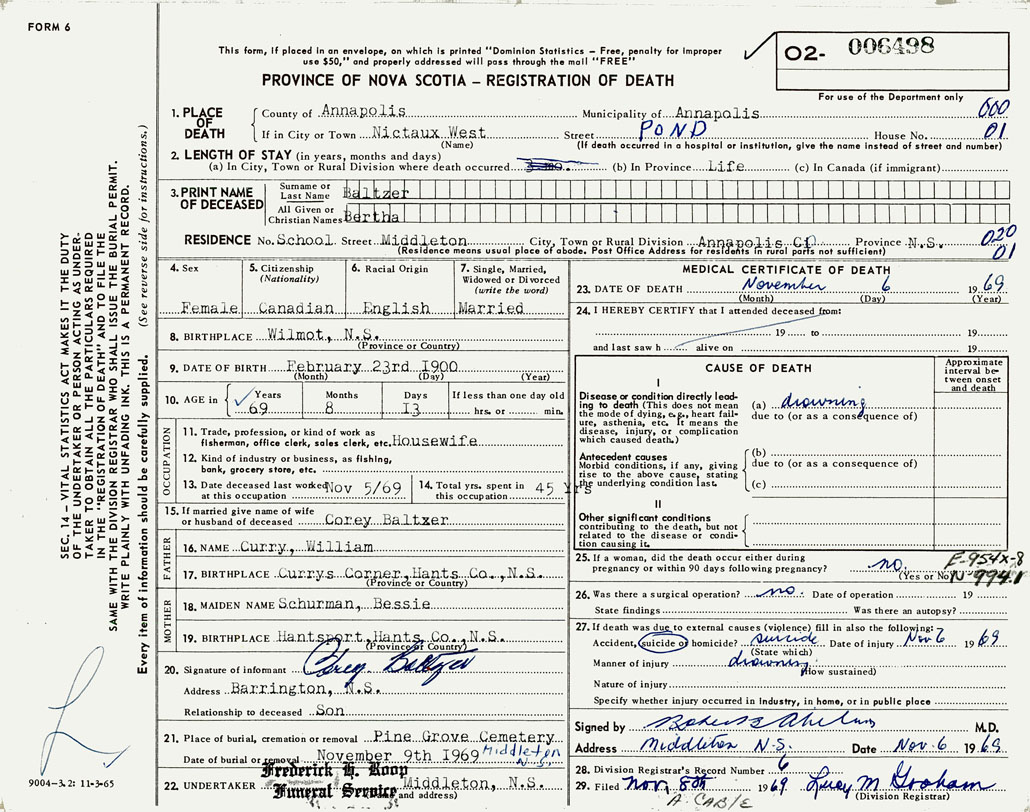 FORM 6
This form, if placed in an envelope, on which is printed "Dominion Statistics – Free, penalty for improper
use $50," and properly addressed will pass through the mail "FREE"
PROVINCE OF NOVA SCOTIA – REGISTRATION OF DEATH
02- 006498
For use of the Department only
1. PLACE OF DEATH County of Annapolis Municipality of Annapolis 000
If in City or Town Nictaux West Street POND House No. 01
(Name) (If death occurred in a hospital or institution, give the name instead of street and number)
2. LENGTH OF STAY (in years, months and days)
(a) In City, Town or Rural Division where death occurred (b) In Province Life (c) In Canada (if immigrant)
3. PRINT NAME OF DECEASED Surname or Last Name Baltzer
All Given or Christian Names Bertha
RESIDENCE No. School Street Middleton City, Town or Rural Division Annapolis Province N.S. 020
(Residence means usual place of abode. Post Office Address for residents in rural parts not sufficient) 01
4. Sex 5. Citizenship (Nationality) 6. Racial Origin 7. Single, Married, Widowed or Divorced (write the word)
Female Canadian English Married
8. BIRTHPLACE Wilmot, N.S.
(Province or Country)
9. DATE OF BIRTH February 23rd 1900
(Month) (Day) (Year)
10. AGE in Years Months Days If less than one day old
69 8 13 hrs. or min.
OCCUPATION
11. Trade, profession, or kind of work as
fisherman, office clerk, sales clerk, etc. Housewife
12. Kind of industry or business, as fishing,
bank, grocery store, etc.
13. Date deceased last worked at this occupation Nov 5/69 14. Total yrs. spent in this occupation 45 Yrs
15. If married give name of wife
or husband of deceased Corey Baltzer
FATHER
16. NAME Curry, William
17. BIRTHPLACE Currys Corner, Hants Co., N.S.
(Province or Country)
MOTHER
18. MAIDEN NAME Schurman, Bessie
19. BIRTHPLACE Hantsport, Hants Co., N.S.
(Province or Country)
20. Signature of informant Baltzer
Address Barrington, N.S.
Relationship to deceased Son
21. Place of burial, cremation or removal Pine Grove Cemetery
Date of burial or removal November 9th 1969 Middleton N.S.
22. UNDERTAKER Frederick H. Roop Funeral Service Middleton, N.S.
and address)
MEDICAL CERTIFICATE OF DEATH
23. DATE OF DEATH November 6 1969
(Month) (Day) (Year)
24. I HEREBY CERTIFY that I attended deceased from:
19 to 19
and last saw h alive on 19
CAUSE OF DEATH
Approximate interval between onset and death
I
Disease or condition directly leading to death (This does not mean the mode of dying, e.g., heart failure, asthenia, etc. It means the disease, injury, or complication which caused death.)
(a) drowning
due to (or as a consequence of)
Antecedent causes
Morbid conditions, if any, giving rise to the above cause, stating the underlying condition last.
(b)
due to (or as a consequence of)
(c)
II
Other significant conditions
contributing to the death, but not related to the disease or condition causing it.
25. If a woman, did the death occur either during
pregnancy or within 90 days following pregnancy? no.
(Yes or No)
E-954X-8
N 994.1
26. Was there a surgical operation? no. Date of operation 19
State findings Was there an autopsy?
27. If death was due to external causes (violence) fill in also the following:
Accident, suicide or homicide? suicide Date of injury Nov 6 1969
(State which)
Manner of injury drowning
(How sustained)
Nature of injury
Specify whether injury occurred in industry, in home, or in public place
Signed by M.D.
Address Middleton N.S. Date Nov. 6 1969
28. Division Registrar's Record Number 6
29. Filed Nov. 8th 1969 Lucy M Graham
(Division Registrar)
A. CABLE
SEC. 14 – VITAL STATISTICS ACT MAKES IT THE DUTY
OF THE UNDERTAKER OR PERSON ACTING AS UNDER-
TAKER TO OBTAIN ALL THE PARTICULARS REQUIRED
IN THE "REGISTRATION OF DEATH" AND TO FILE THE
SAME WITH THE DIVISION REGISTRAR WHO SHALL ISSUE THE BURIAL PERMIT.
WRITE PLAINLY WITH UNFADING INK. THIS IS A PERMANENT RECORD.
Every item of information should be carefully supplied. (See reverse side for instructions.)
9004–3.2: 11-3-65